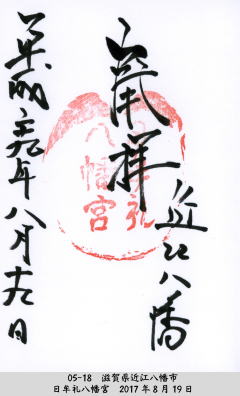 奉拝
近江八幡
日牟礼
八幡宮
平成二十九年八月十九日
05-18 滋賀県近江八幡市
日牟礼八幡宮 2017年8月19日